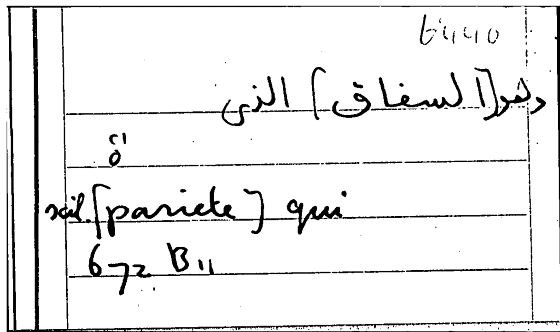 6440
وهو [السفاق] الذى
ὅ
scil. [pariete] qui
672 B 11